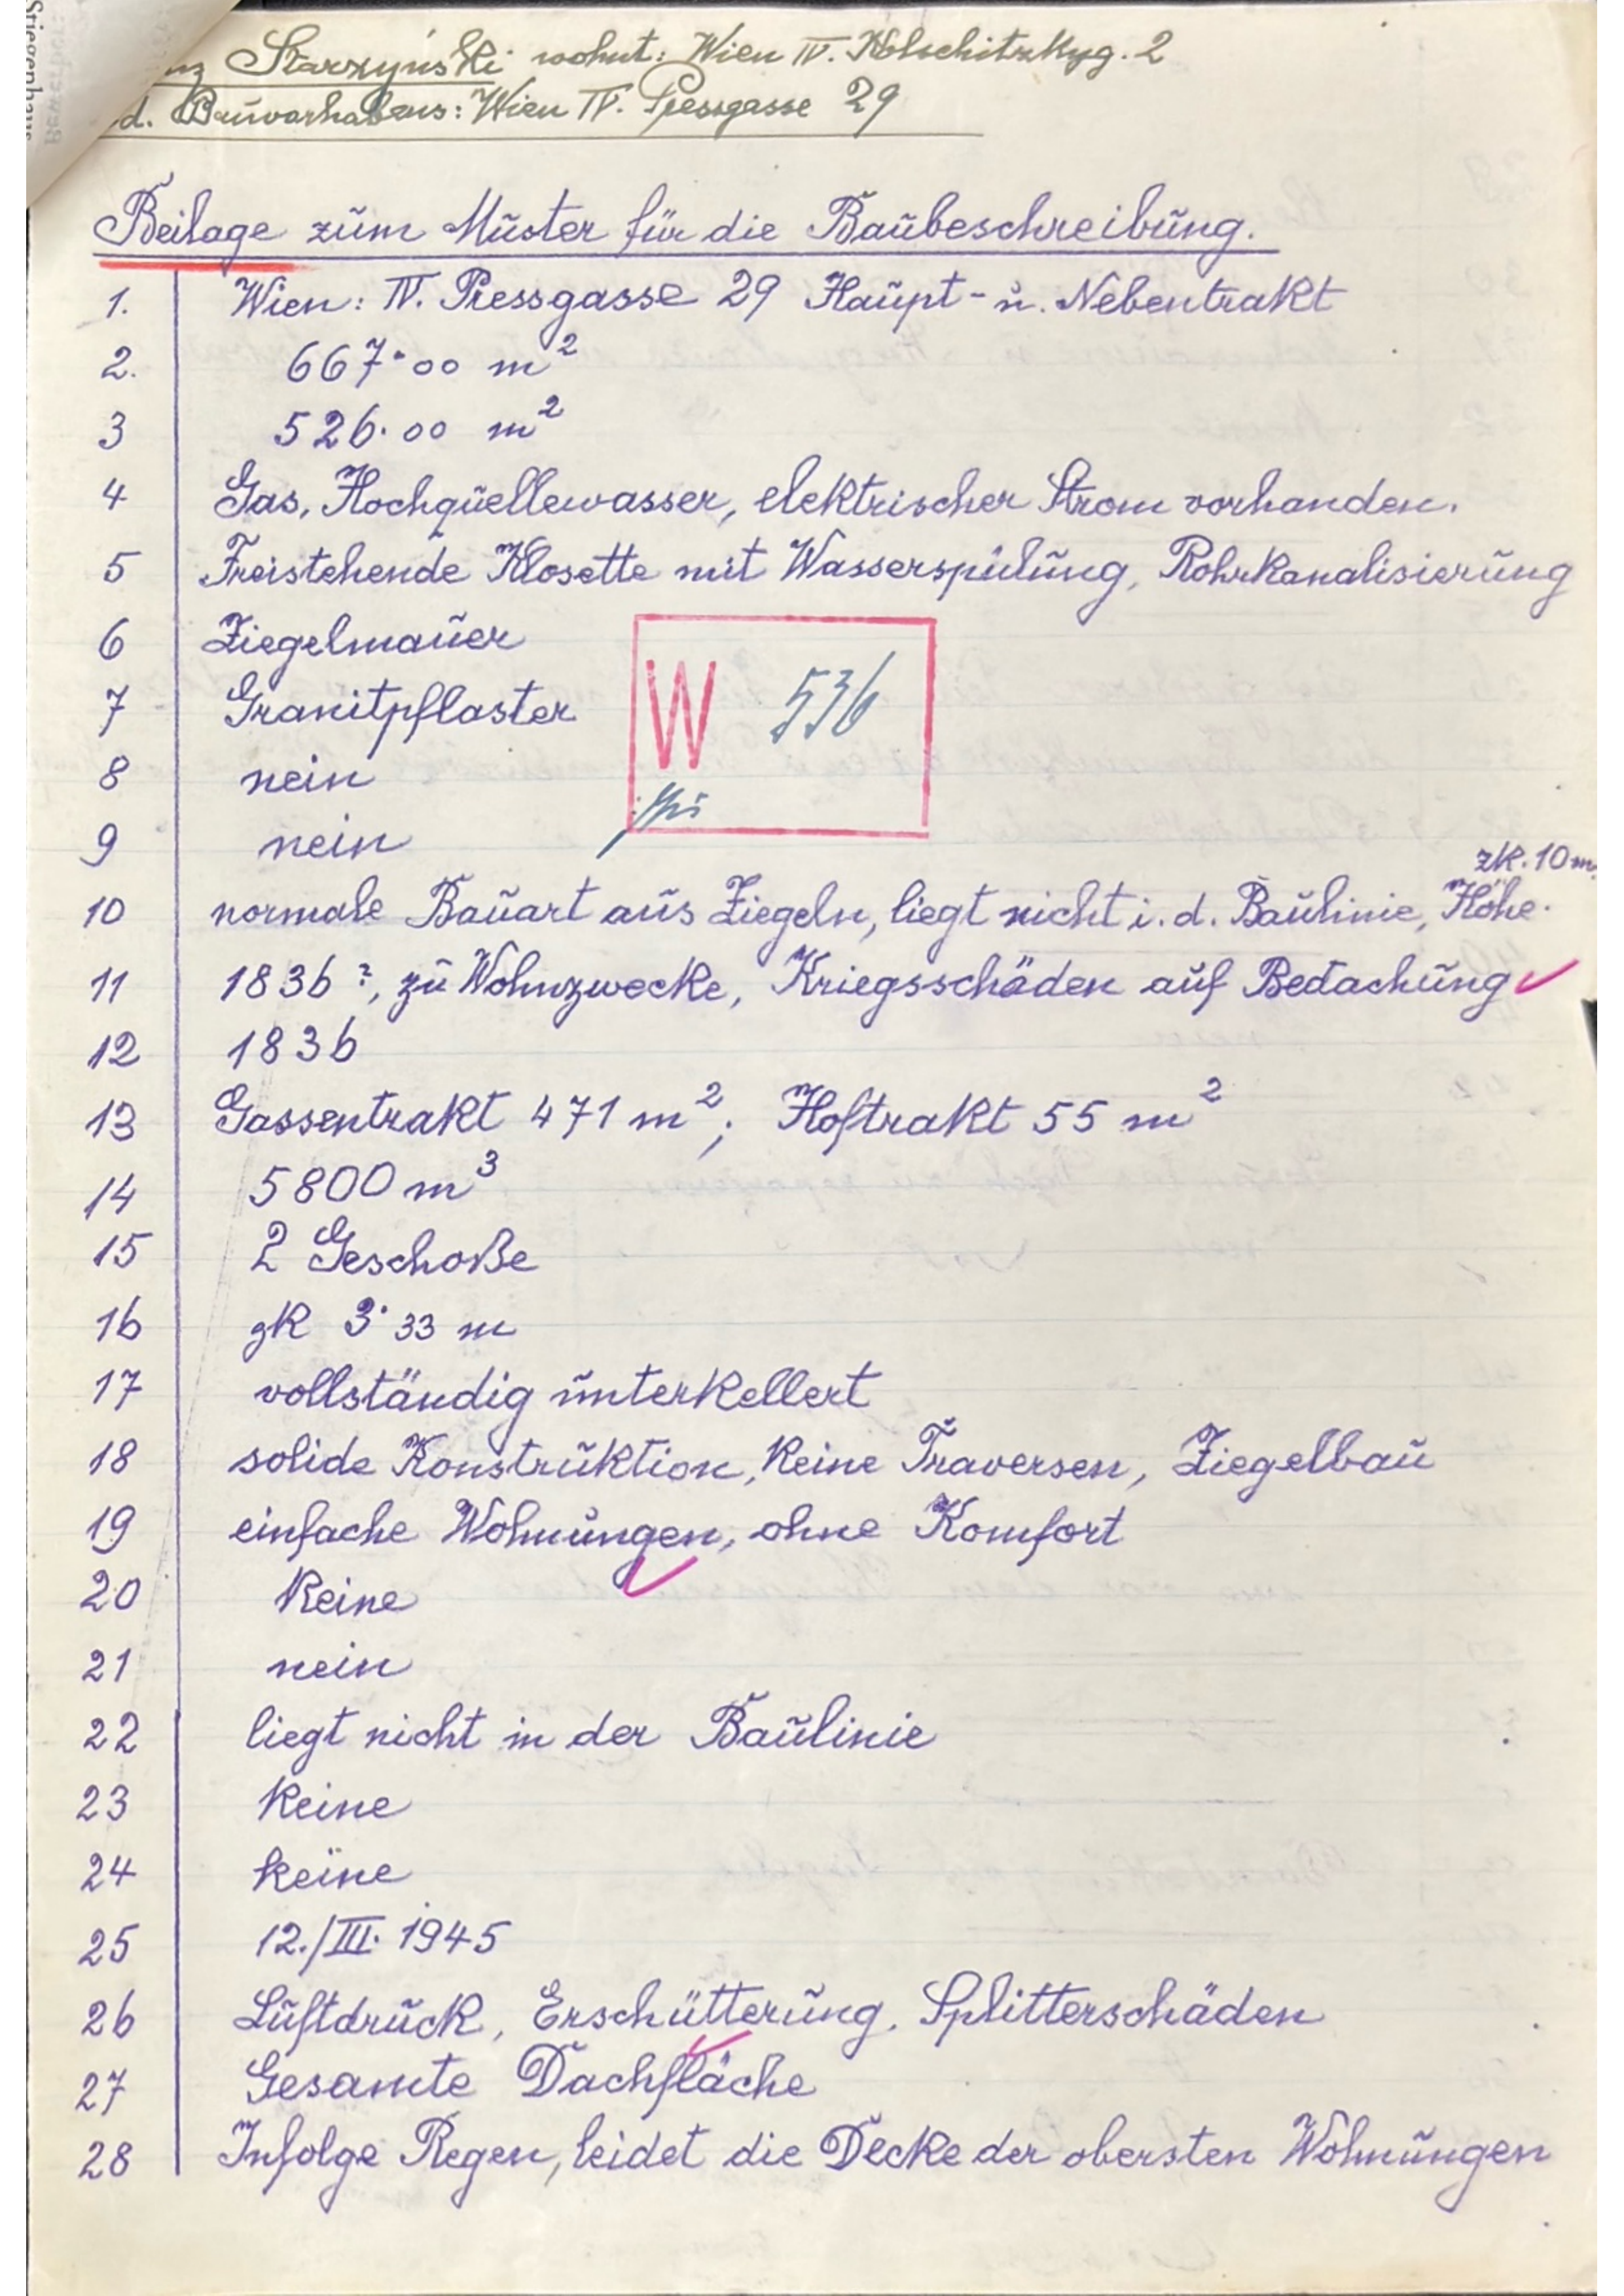 nz Starzyński wohnt: Wien IV. Kolschitzkyg. 2
d. Bauvorhabens: Wien IV. Pressgasse 29
Beilage zum Muster für die Baubeschreibung.
1. Wien: IV. Pressgasse 29 Haupt- u. Nebentrakt
2. 667·00 m²
3 526·00 m²
4 Gas, Hochquellewasser, elektrischer Strom vorhanden.
5 Freistehende Klosette mit Wasserspülung, Rohrkanalisierung
6 Ziegelmauer
7 Granitpflaster
W 536
8 nein
9 nein
zk. 10 m
10 normale Bauart aus Ziegeln, liegt nicht i. d. Baulinie, Höhe.
11 1836?, zu Wohnzwecke, Kriegsschäden auf Bedachung
12 1836
13 Gassentrakt 471 m²; Hoftrakt 55 m²
14 5800 m³
15 2 Geschoße
16 zk 3·33 m
17 vollständig unterkellert
18 solide Konstruktion, keine Traversen, Ziegelbau
19 einfache Wohnungen, ohne Komfort
20 keine
21 nein
22 liegt nicht in der Baulinie
23 keine
24 keine
25 12./III. 1945
26 Luftdruck, Erschütterung, Splitterschäden
27 Gesamte Dachfläche
28 Infolge Regen, leidet die Decke der obersten Wohnungen